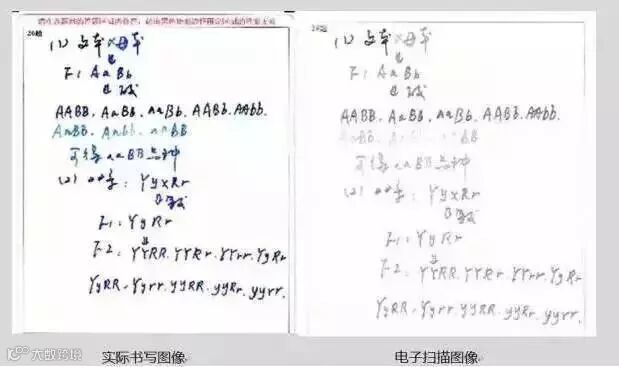 请在各题目的答题区域内作答，超出黑色矩形边框限定区域的答案无效
26题
(1) 父本×母本
↓
F1 AaBb
↓ 减
AABB、AaBB、aaBb、AABb、AAbb、
AaBB、Aabb、aaBB
可得 aaBB 品种
(2) 亲本：YyxRr
F1：YyRr
↓
F2：YYRR、YYRr、YYrr、YyRr
YyRR、Yyrr、yyRR、yyRr、yyrr、
26题
(1) 父本×母本
↓
F1 AaBb
↓ 减
AABB、AaBB、aaBb、AABb、AAbb、
AaBB、Aa BB
可得 aaBB 品种
(2) 亲本：YyxRr
F1：YyRr
↓
F2：YYRR、YYRr、YYrr、YyRr
YyRR、Yyrr、yyRR、yyRr、yyrr、
实际书写图像
电子扫描图像
大数跨境